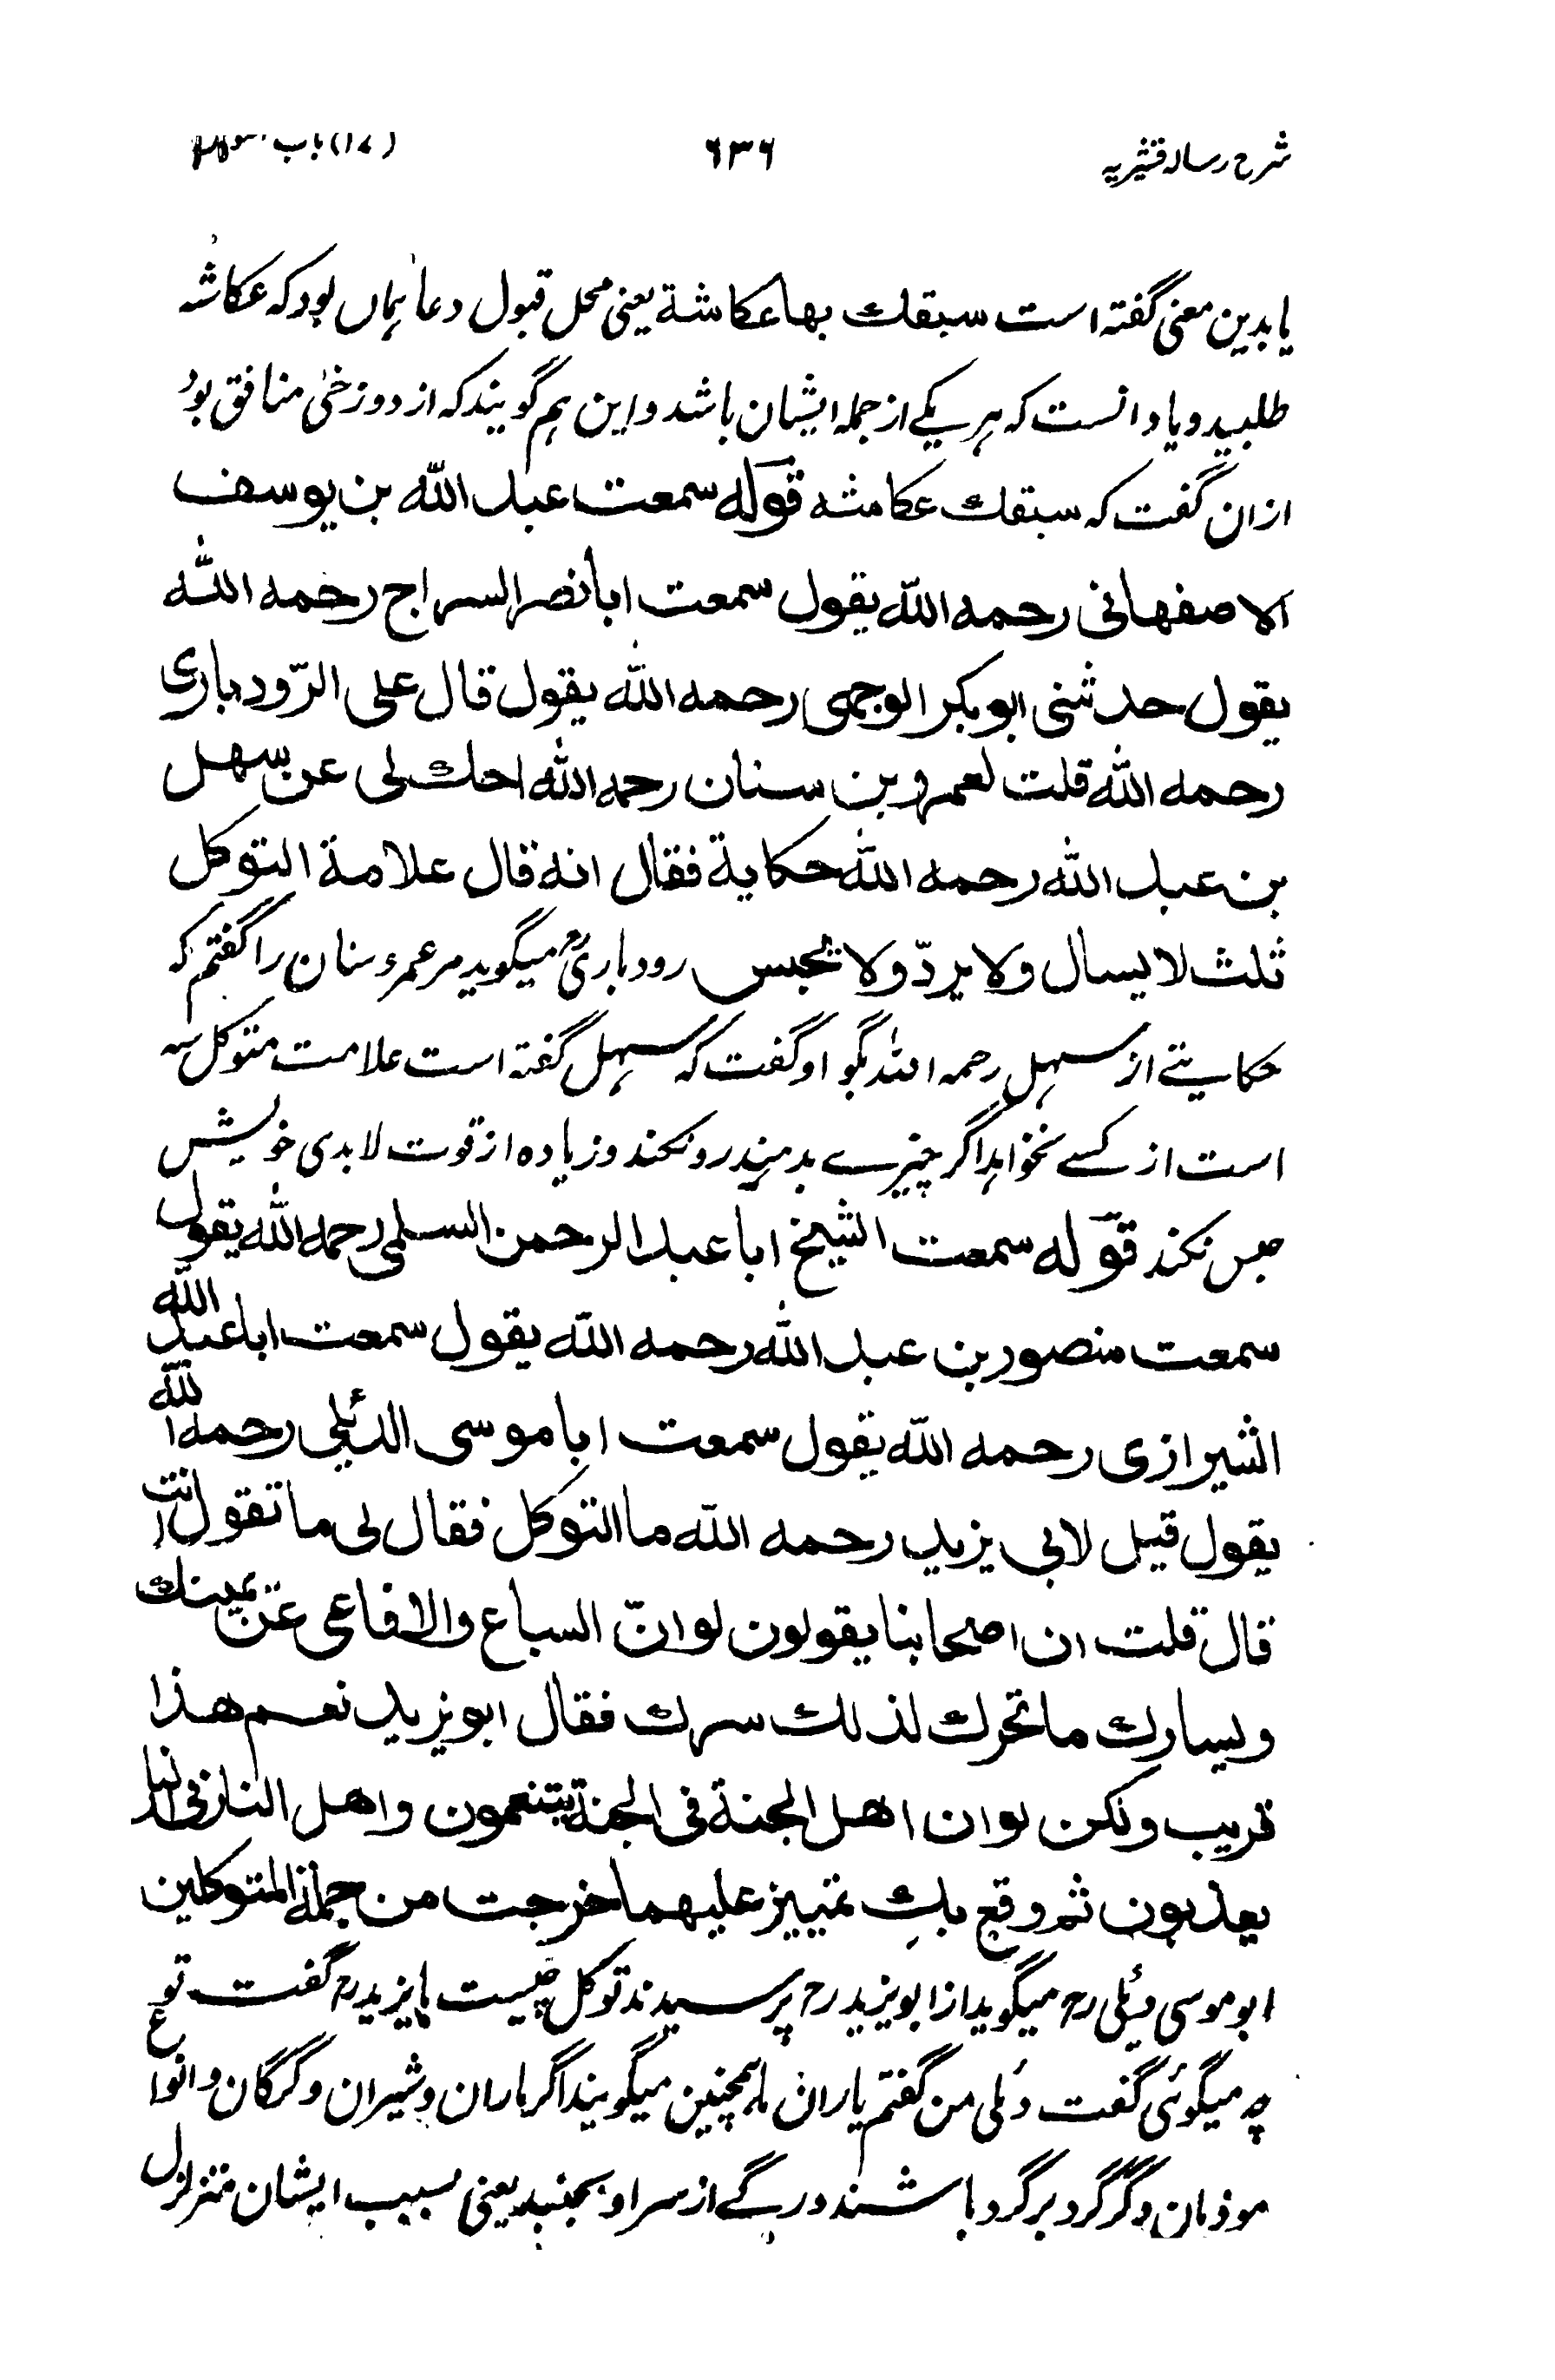 شرح رساله قشیریه ۶۳۶ (۱۷) باب
یا بدین معنی گفته است سبقك بها عكاشة یعنی محل قبول دعا ہماں بود که عکاشہ
طلبید و یا دانست که ہر یکے از جملہ ایشان باشد و این ہم گویند که از دوزخی منافق بود
ازان گفت که سبقك عكاشه قوله سمعت عبد الله بن يوسف
الاصفهانى رحمه الله يقول سمعت ابا نصر السراج رحمه الله
يقول حدثنى ابو بكر الوجهى رحمه الله يقول قال على الرّودبارى
رحمه الله قلت لعمرو بن سنان رحمه الله احك لى عن سهل
بن عبد الله رحمه الله حكاية فقال انه قال علامة التوكل
ثلث لا يسال ولا يردّ ولا يحبس رودباریؒ میگوید مر عمرو سنان را گفتم که
حکایتے از سہل رحمہ اللہ بگو او گفت که سہل گفته است علامت متوکل سہ
است از کسے نخواہد اگر چیزے بدہند رد نکند و زیاده از قوت لابدی خویش
حبس نکند قوله سمعت الشيخ ابا عبد الرحمن السلمى رحمه الله يقول
سمعت منصور بن عبد الله رحمه الله يقول سمعت ابا عبد الله
الشيرازى رحمه الله يقول سمعت ابا موسى الدئلى رحمه الله
يقول قيل لابى يزيد رحمه الله ما التوكل فقال لى ما تقول انت
قال قلت ان اصحابنا يقولون لو انّ السباع والافاعى عن يمينك
ويسارك ما تحرك لذلك سرك فقال ابو يزيد نعم هذا
قريب ولكن لو ان اهل الجنة فى الجنة يتنعمون واهل النار فى النار
يعذبون ثم وقع بك تمييز عليهما خرجت من جملة المتوكلين
ابو موسی دئلی رح میگوید از ابو یزید رح پرسیدند توکل چیست بایزید رح گفت تو
چہ میگوئی گفت دئلی من گفتم یاران ما ہمچنین میگویند اگر ماران و شیران و گرگان و انواع
موذیان و گر گرد بر گرد باشند و رگے از سر او بجنبد یعنی بسبب ایشان متزلزل